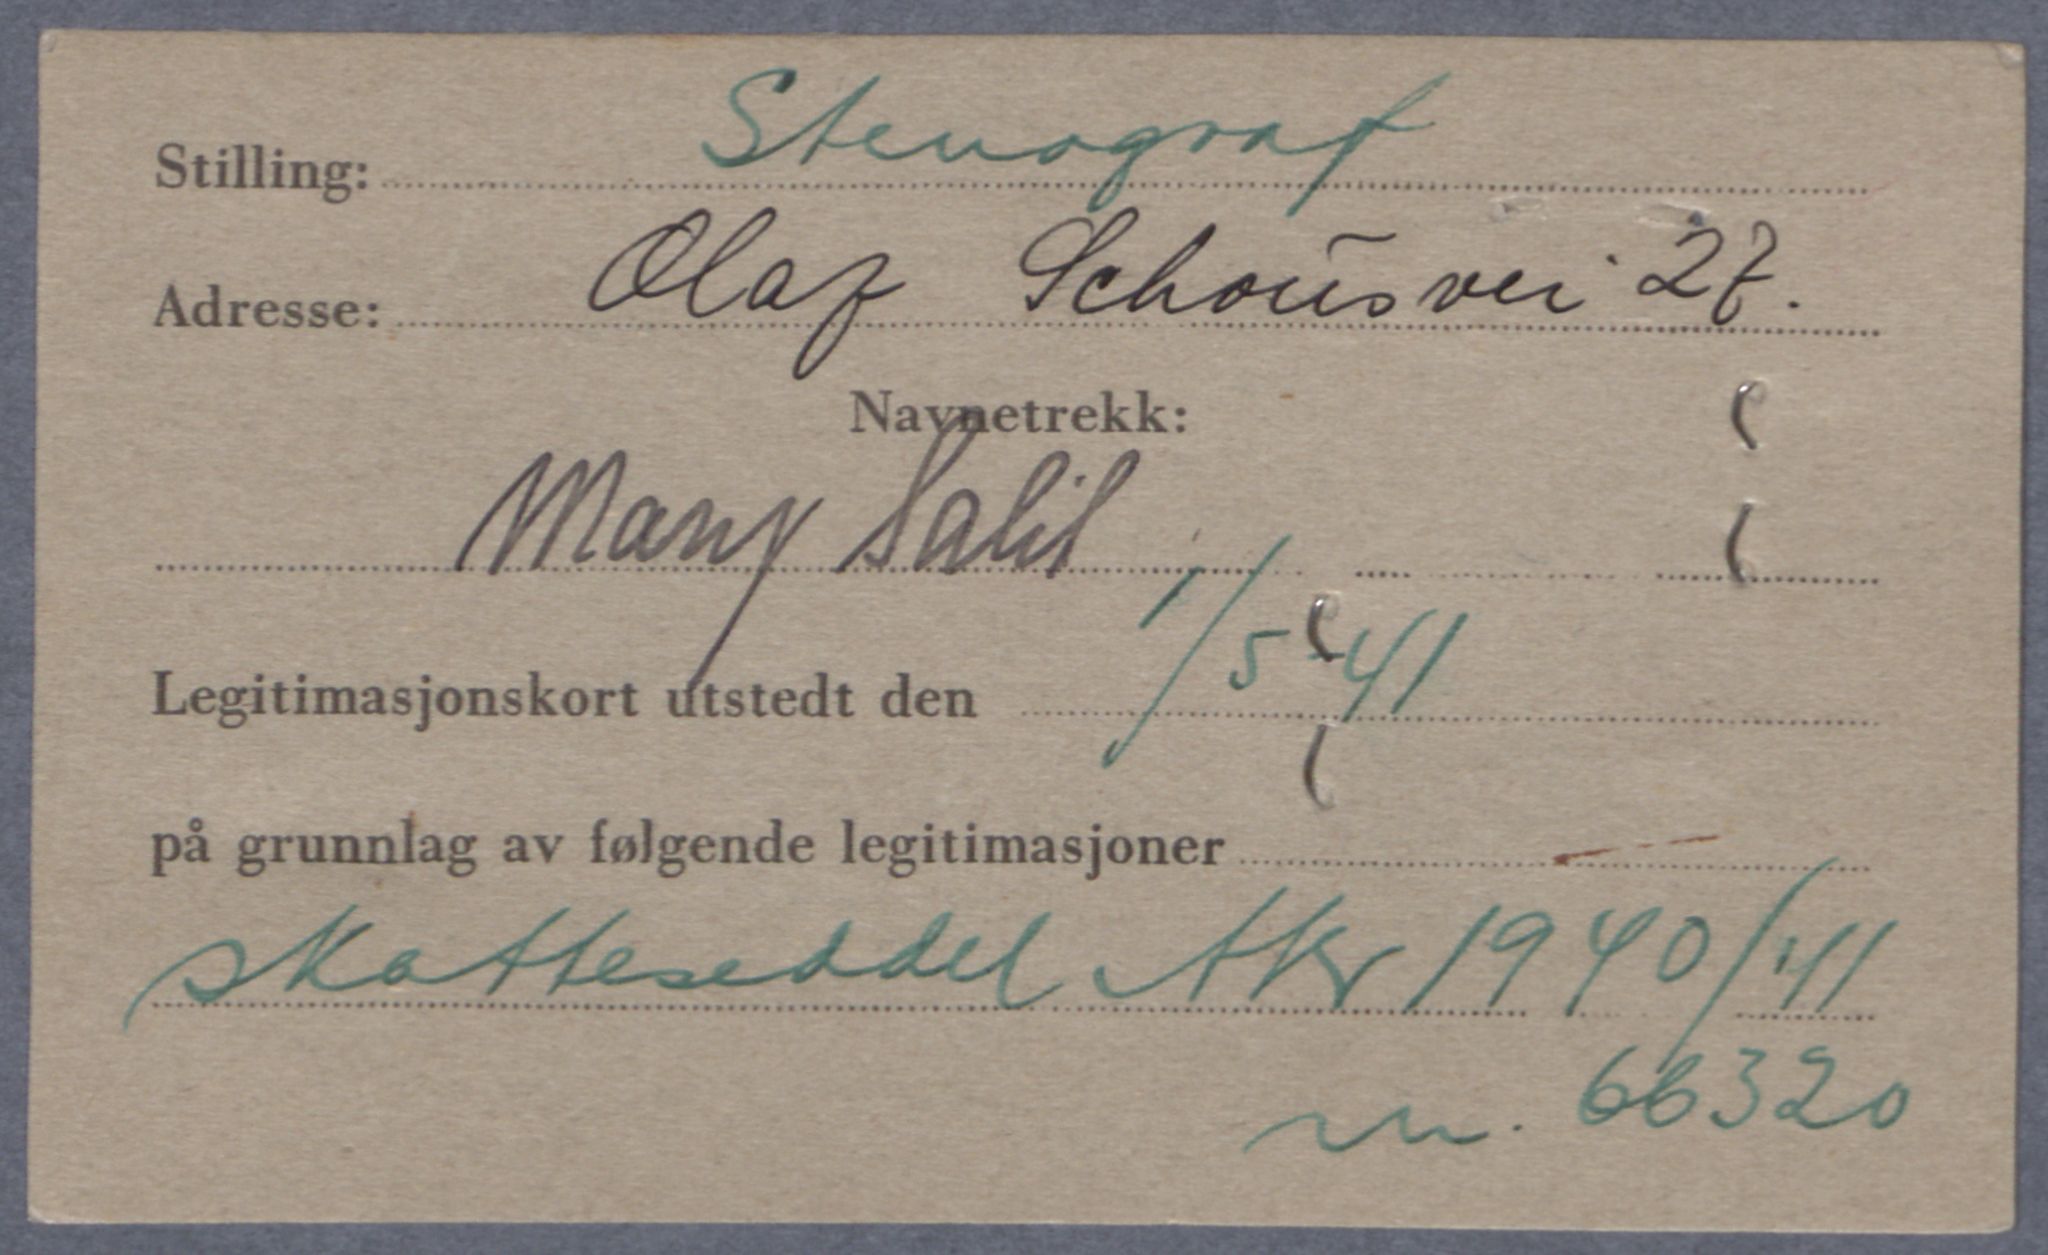 Stilling: Stenograf
Adresse: Olaf Schous vei 27.
Navnetrekk:
Mary Salil
Legitimasjonskort utstedt den 1/5-41
på grunnlag av følgende legitimasjoner
skatteseddel Akr 1940/41
nr. 66320